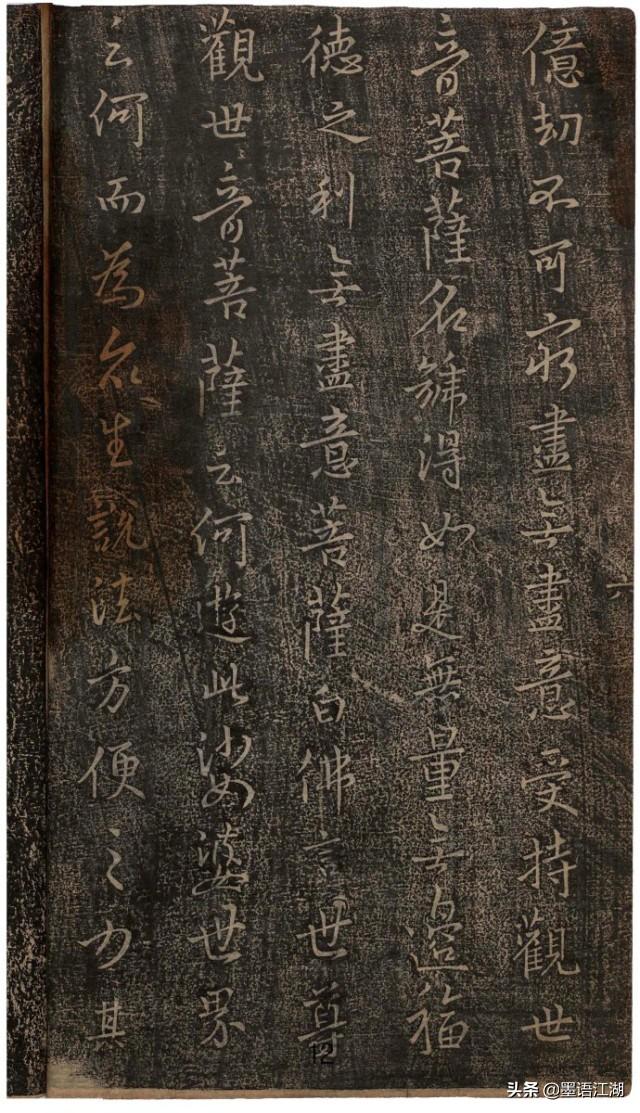 億劫不可窮盡無盡意受持觀世
音菩薩名號得如是無量無邊福
德之利無盡意菩薩白佛言世尊
觀世音菩薩云何遊此娑婆世界
云何而為眾生說法方便之力其
六
12
头条 @墨语江湖